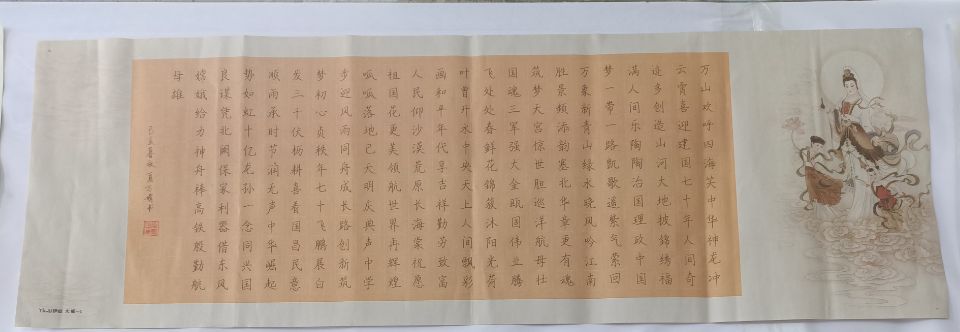 万山欢呼四海笑中华神龙冲
云霄喜迎建国七十年人间奇
迹多创造山河大地披锦绣福
满人间乐陶陶治国理政中国
梦一带一路凯歌遥紫气萦回
万象新青山绿水晓风吟江南
胜景频添韵塞北华章更有魂
筑梦天宫惊世胆巡洋航母壮
国魂三军强大金瓯国伟业腾
飞处处春鲜花锦簇沐阳光荷
叶曾开水中央天上人间飘彩
画和平年代寻吉祥勤劳致富
人民仰沙漠荒原长海棠祝愿
祖国花更美领航世界再辉煌
呱呱落地已天明庆典声中学
步迎风雨同舟成长路创新筑
梦初心贞秩年七十飞鹏展白
发三千伏枥耕喜看国昌民意
顺雨承时节润无声中华崛起
势如虹十亿龙孙一念同兴国
良谋凭北阙保家利器借东风
嫦娥给力神舟棒高铁殷勤航
母雄
己亥暮秋夏书